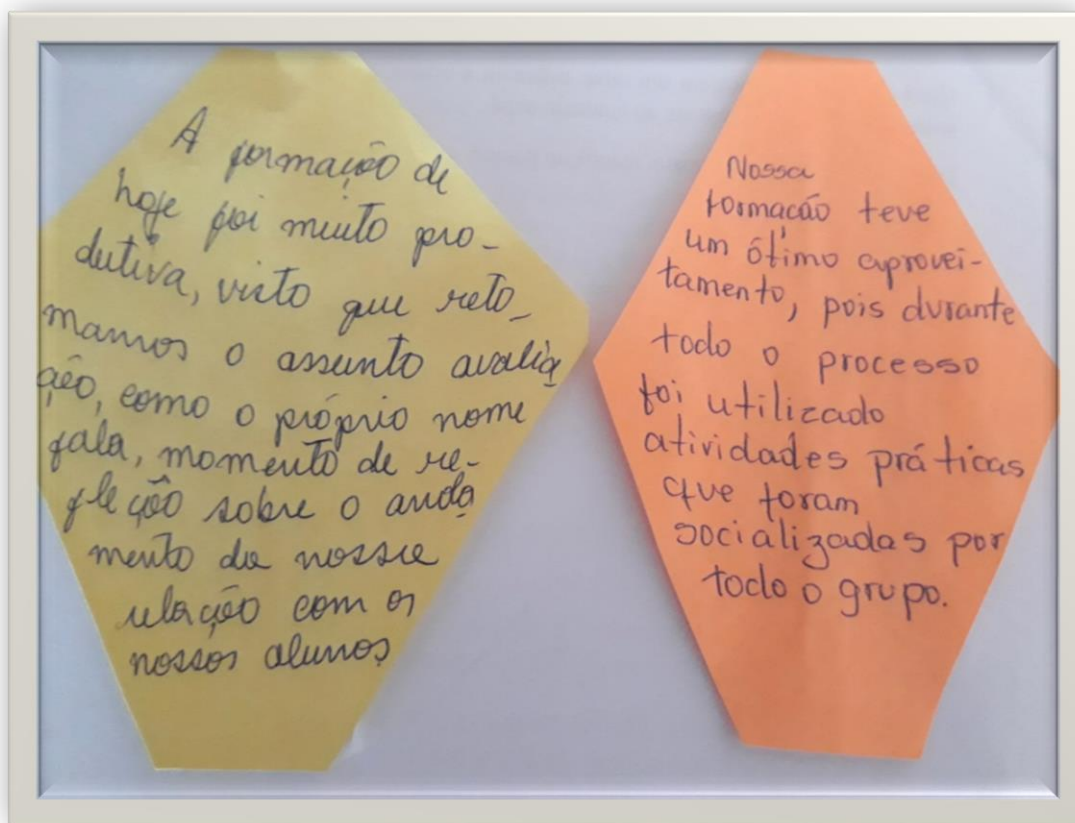 A formação de
hoje foi muito pro-
dutiva, visto que reto-
mamos o assunto avalia
ção, como o próprio nome
fala, momento de re-
fleção sobre o anda
mento da nossa
relação com os
nossos alunos
Nossa
formação teve
um ótimo aprovei-
tamento, pois durante
todo o processo
foi utilizado
atividades práticas
que foram
socializadas por
todo o grupo.